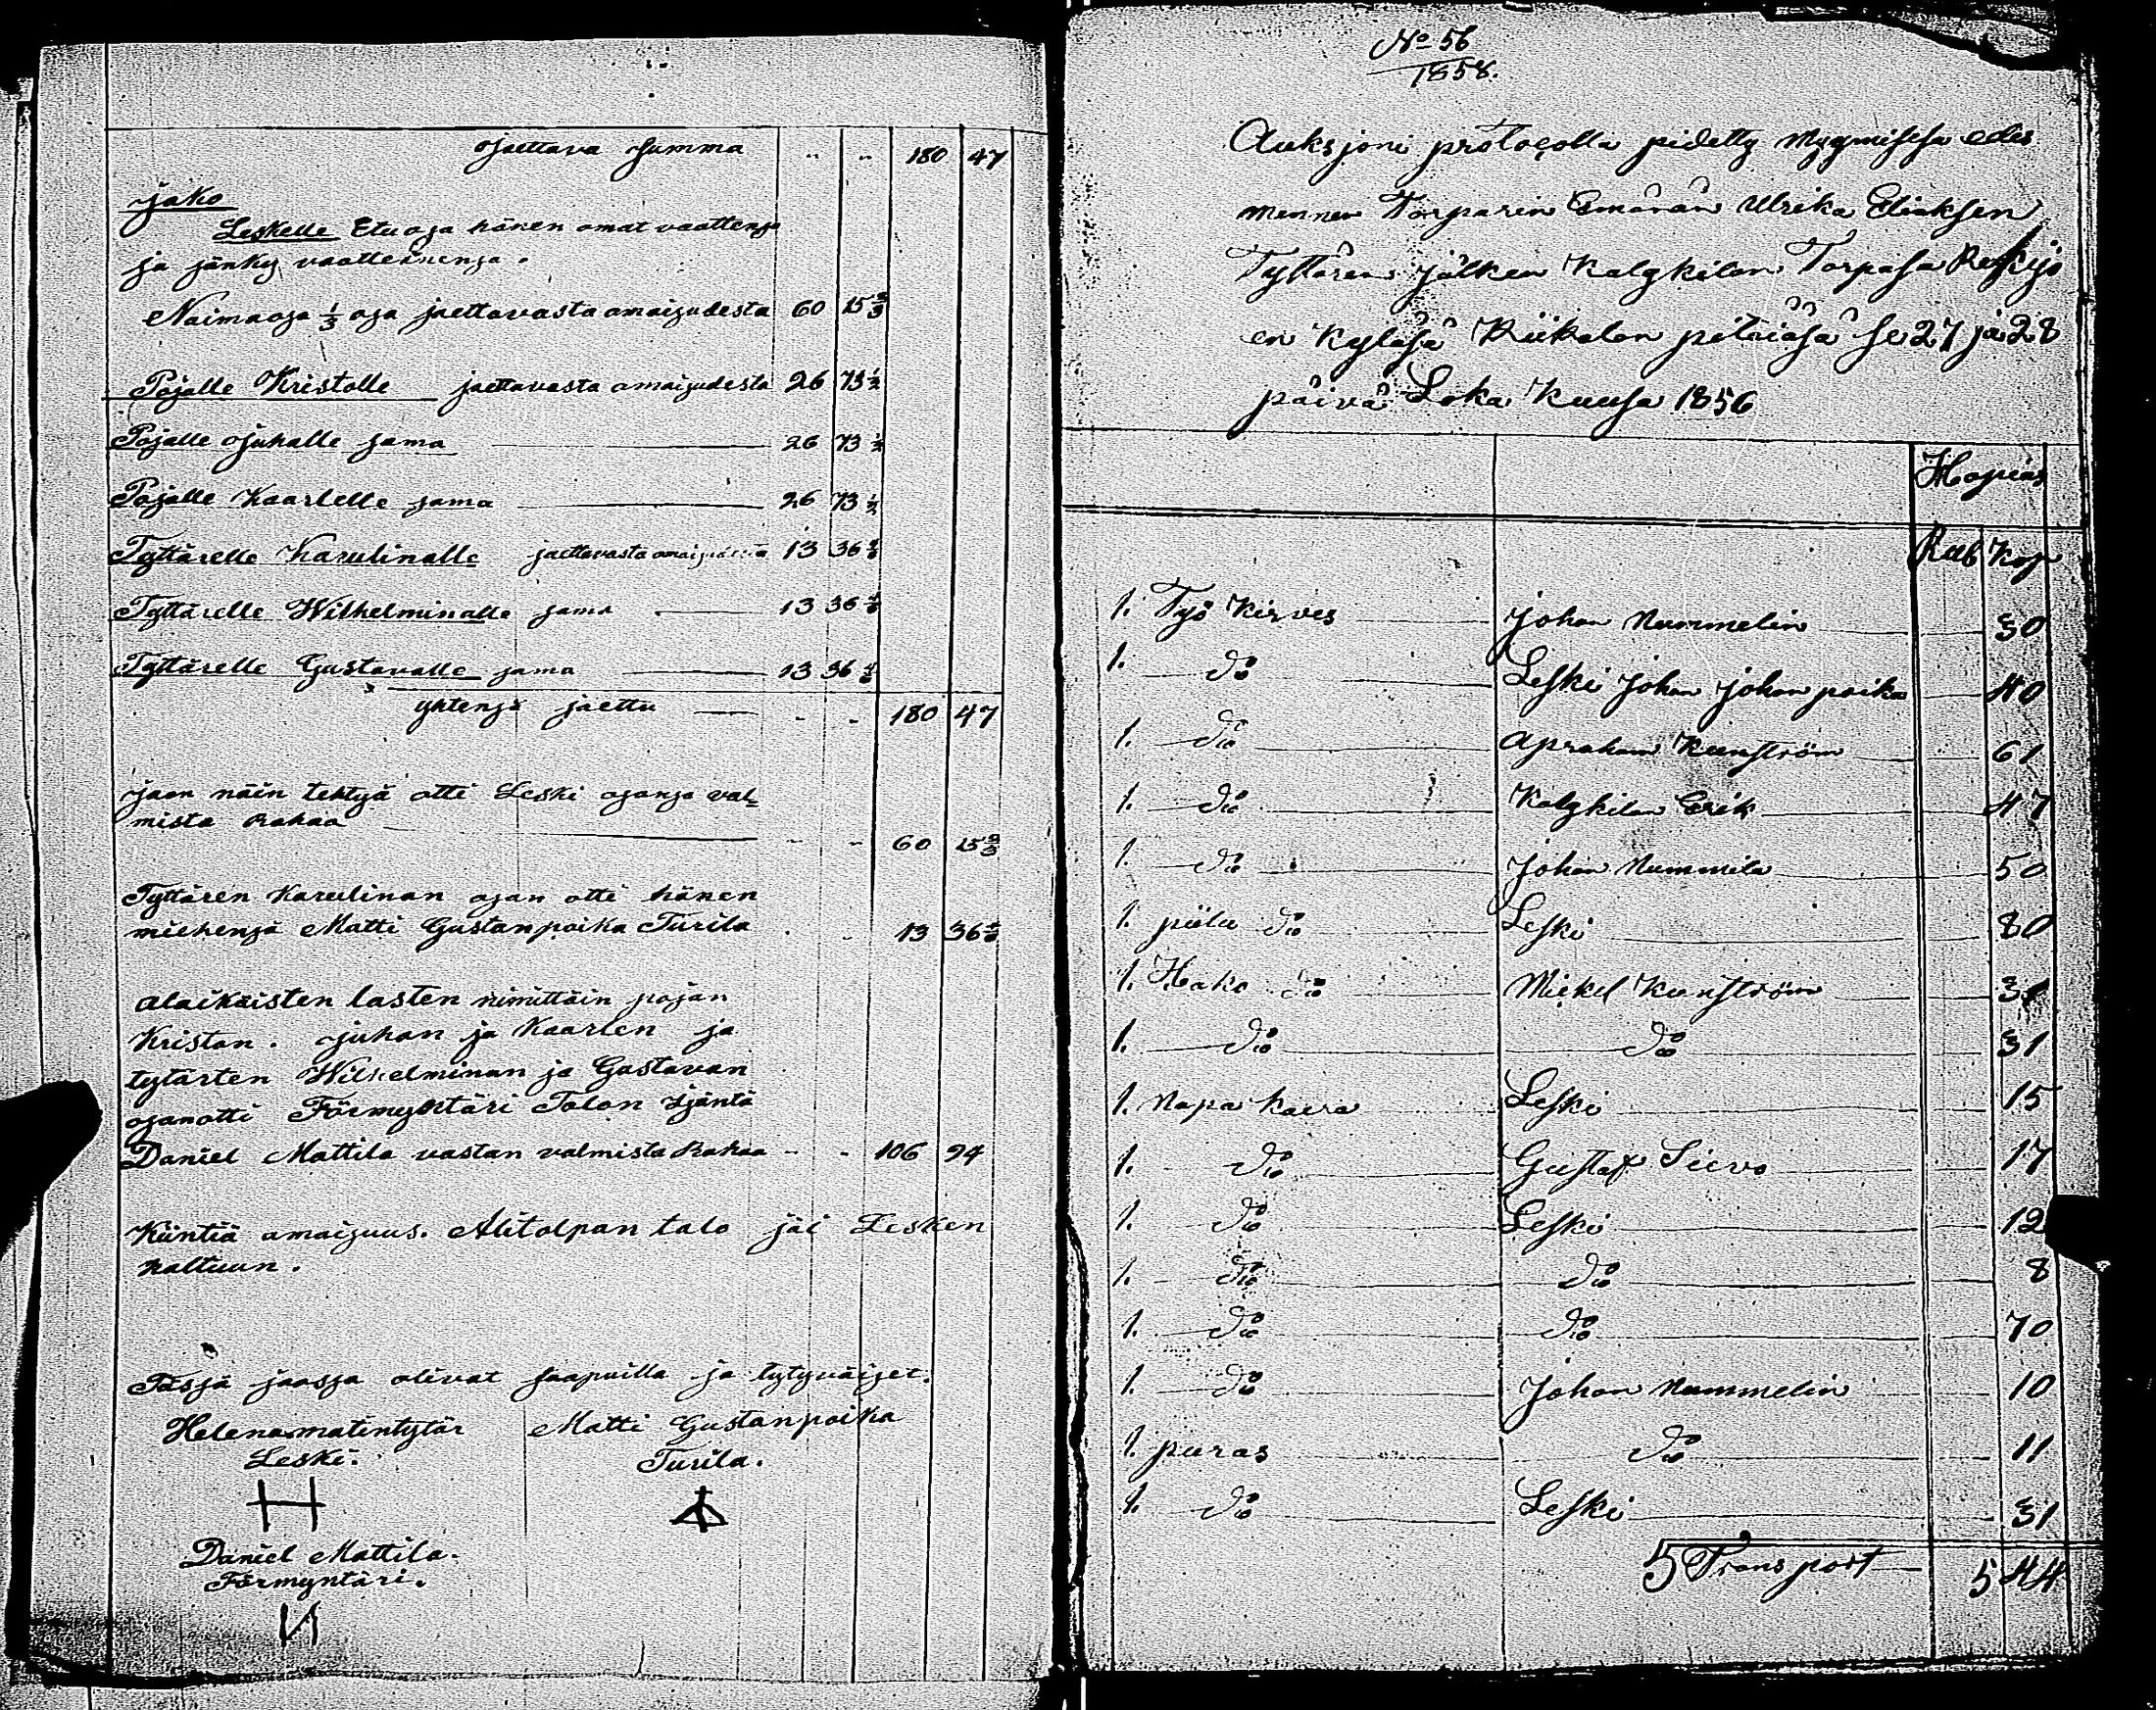 Jaettava summa " " 180 47
Jako
Leskelle Etuosa hänen omat vaattensa
ja sänky vaatteinensa.
Naimaosa 1/3 osa jaettavasta omaisudesta 60 15 2/3
Pojalle Kristolle jaettavasta omaisudesta 26 73 1/2
Pojalle Juhalle sama 26 73 1/2
Pojalle Kaarlelle sama 26 73 1/2
Tyttärelle Karulinalle jaettavasta omaisudesta 13 36
Tyttärelle Wilhelminalle sama 13 36
Tyttärelle Gustavalle sama 13 36
yhtensä jaettu - - 180 47
Jaon näin tehtyä otti Leski osansa val-
mista Rahaa - - 60 15 2/3
Tyttären Karulinan osan otti hänen
miehensä Matti Gustanpoika Turila - - 13 36
Alaikäisten lasten nimittäin pojan
Kriston. Juhan ja Kaarlen ja
tytärten Wilhelminan ja Gustavan
osanotti Förmyntäri Talon Isäntä
Daniel Mattila vastan valmista Rahaa - - 106 94
Kiintiä omaisuus. Alitolpan talo jäi Lesken
haltuun.
Tässä jaossa olivat saapuilla ja tytyväiset.
Helena matintytär Matti Gustanpoika
Leski. Turila.
H
Daniel Mattila.
Förmyntäri.
И
No 56
1858.
Auksjoni protocolla pidetty myymisesä edes
mennen Torparin Emänän Ulrika Eliaksen
Tyttären jälken Kalykilan Torpasa
en Kyläsä Kiikalan pitäjäsä se 27 ja 28
päivä Loka Kuusa 1856
Hopias
Rub Kop
1. Työ Kirves Johan Nummelin 30
1. do Leski Johan Johan poika 40
1. do Apraham Kunström 61
1. do Kalykilan Erik 47
1. do Johan Nummila 50
1. piilu do Leski 80
1. Hako do Mickel Kunström 31
1. do do 31
1. Napa kaira Leski 15
1. do Gustaf Sievo 17
1. do Leski 12
1. do do 8
1. do do 70
1. do Johan Nummelin 10
1. puras do 11
1. do Leski 31
Transport 5 44